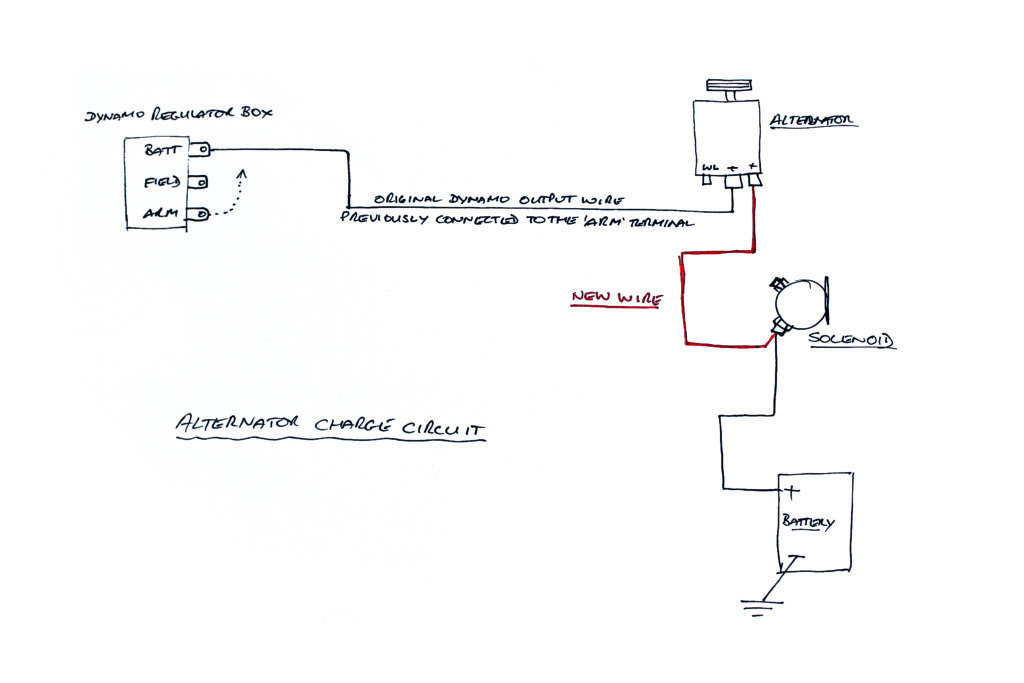 DYNAMO REGULATOR BOX
BATT
FIELD
ARM
ALTERNATOR
WL + +
ORIGINAL DYNAMO OUTPUT WIRE
PREVIOUSLY CONNECTED TO THE 'ARM' TERMINAL
NEW WIRE
SOLENOID
ALTERNATOR CHARGE CIRCUIT
+
BATTERY
-